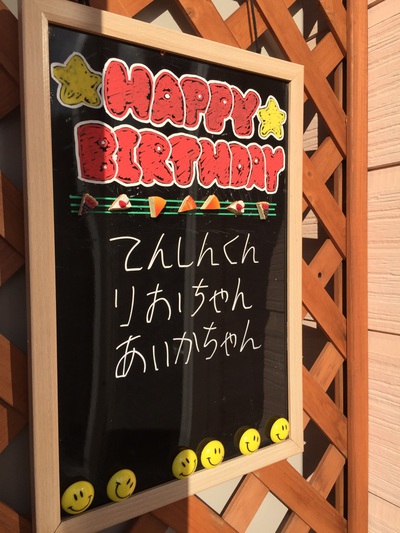 HAPPY
BIRTHDAY
てんしんくん
りおいちゃん
あいかちゃん